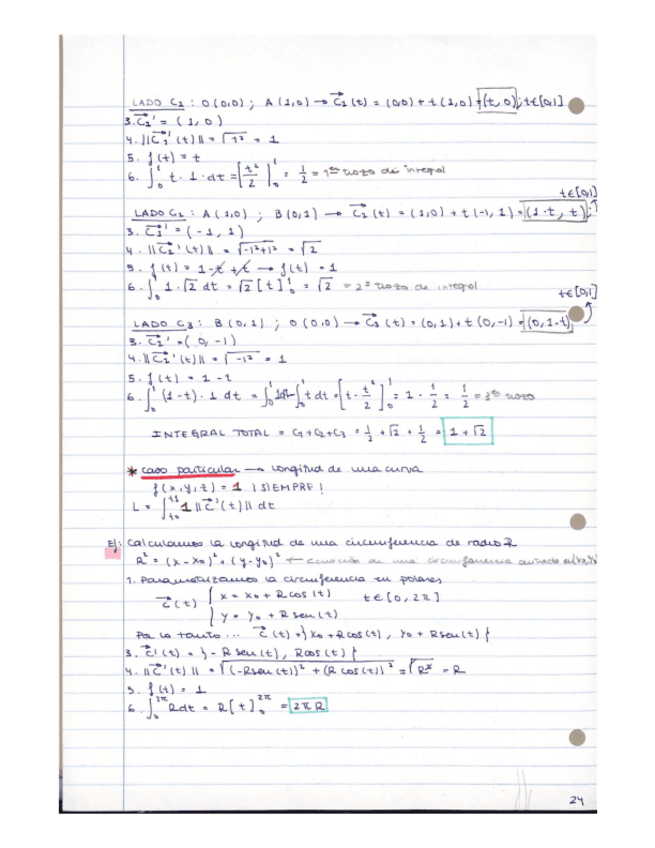 LADO C1 : O (0,0) ; A (1,0) → C⃗1 (t) = (0,0) + t (1,0) = (t, 0) ; t∈[0,1]
3. C⃗1' = (1, 0)
4. ||C⃗1' (t)|| = √1² = 1
5. f (t) = t
6. ∫₀¹ t · 1 · dt = [t²/2]₀¹ = 1/2 = 1er trozo de integral
t∈[0,1]
LADO C2 : A (1,0) ; B (0,1) → C⃗2 (t) = (1,0) + t (-1, 1) = (1-t, t) ;
3. C⃗1' = (-1, 1)
4. ||C⃗1' (t)|| = √-1²+1² = √2
5. f (t) = 1 - t + t → f(t) = 1
6. ∫₀¹ 1 · √2 dt = √2 [t]₀¹ = √2 = 2º trozo de integral
t∈[0,1]
LADO C3 : B (0,1) ; O (0,0) → C⃗3 (t) = (0,1) + t (0,-1) = (0, 1-t)
3. C⃗1' = (0, -1)
4. ||C⃗1' (t)|| = √-1² = 1
5. f (t) = 1 - t
6. ∫₀¹ (1-t) · 1 dt = ∫₀¹ 1dt - ∫₀¹ t dt = [t - t²/2]₀¹ = 1 - 1/2 = 1/2 = 3er trozo
INTEGRAL TOTAL = C1+C2+C3 = 1/2 + √2 + 1/2 = 1 + √2
* caso particular → longitud de una curva
f (x, y, t) = 1 ¡SIEMPRE!
L = ∫ₜ₀ᵗᶠ 1 ||C⃗'(t)|| dt
Ej: Calculamos la longitud de una circunferencia de radio R
R² = (x - x0)² + (y - y0)² ← ecuación de una circunferencia centrada en (x0, y0)
1. Parametrizamos la circunferencia en polares
C⃗ (t) { x = x0 + R cos (t) t∈[0, 2π]
y = y0 + R sen (t)
Por lo tanto ... C⃗ (t) = { x0 + R cos (t), y0 + R sen (t) }
3. C⃗' (t) = { - R sen (t), R cos (t) }
4. ||C⃗' (t)|| = √(-R sen (t))² + (R cos (t))² = √R² = R
5. f (t) = 1
6. ∫₀²π R dt = R [t]₀²π = 2πR
24